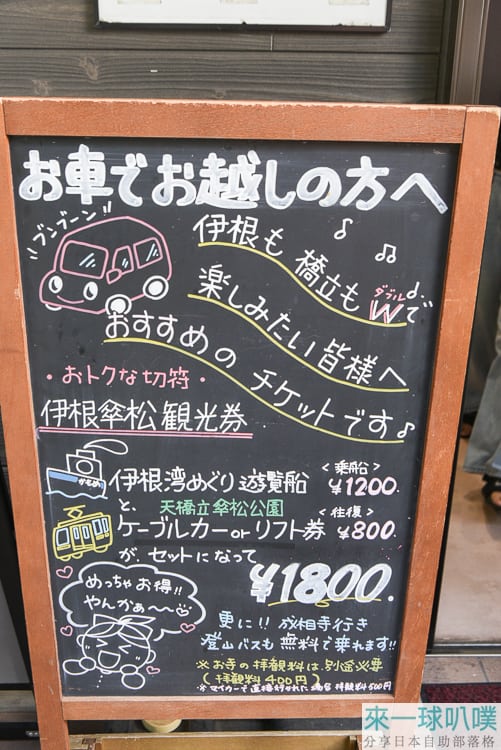 お車でお越しの方へ
ブンブーン!!
伊根も 橋立も Wで
ダブル
楽しみたい皆様へ
おすすめの チケットです♪
・おトクな切符・
伊根傘松観光券
伊根湾めぐり遊覧船 <乗船> ¥1200.
かもめ
と、 天橋立傘松公園 <往復>
ケーブルカーorリフト券 ¥800.
が、セットになって
¥1800.
めっちゃお得!!
やんかぁ〜〜
更に!! 成相寺行き
登山バスも 無料で乗れます!!
※お寺の拝観料は別途必要
(拝観料400円)
※マイカーで直接行かれた場合 拝観料500円
來一球叭噗
分享日本自助部落格